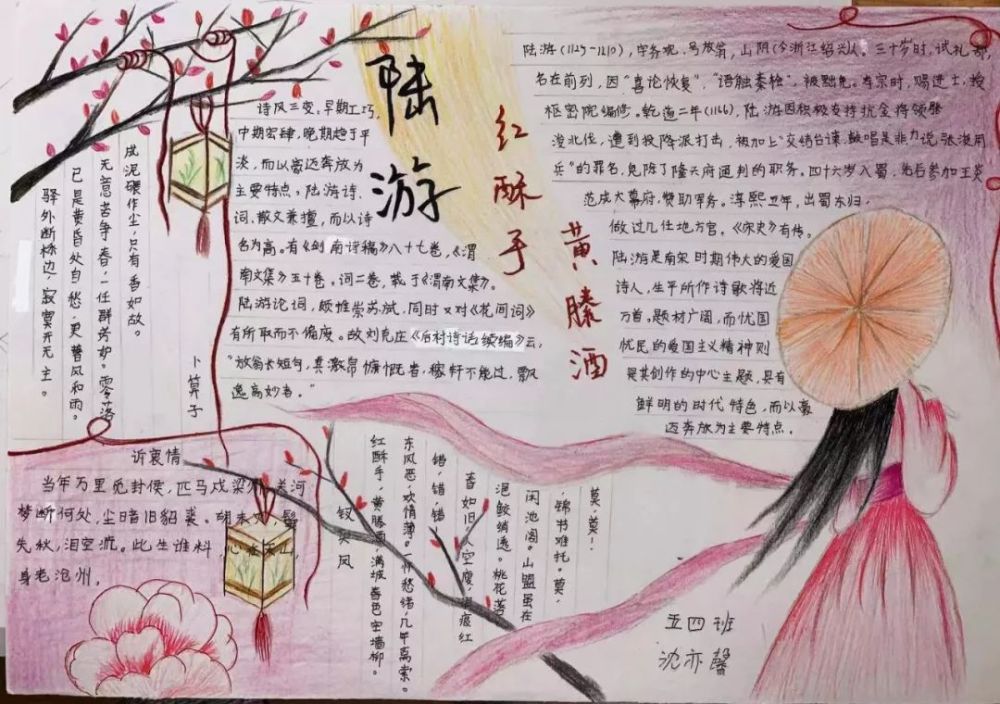 陆游
红酥手
黄縢酒
诗风三变,早期工巧,
中期宏肆,晚期趋于平
淡,而以豪迈奔放为
主要特点。陆游诗、
词、散文兼擅,而以诗
名为高。有《剑南诗稿》八十七卷,《渭
南文集》五十卷。词二卷,载于《渭南文集》。
陆游论词,颇推崇苏轼,同时又对《花间词》
有所取而不偏废。故刘克庄《后村诗话续编》云,
“放翁长短句,其激昂慷慨者,稼轩不能过,飘
逸高妙者。”
陆游(1125-1210),字务观,号放翁,山阴(今浙江绍兴)人。三十岁时,试礼部,
名在前列,因“喜论恢复”,“语触秦桧”,被黜免。孝宗时,赐进士,授
枢密院编修。乾道二年(1166),陆游因积极支持抗金将领张
浚北伐,遭到投降派打击,被加上“交结台谏,鼓唱是非,力说张浚用
兵”的罪名,免除了隆兴府通判的职务。四十六岁入蜀,先后参加王炎
范成大幕府,赞助军务。淳熙五年,出蜀东归,
做过几任地方官。《宋史》有传。
陆游是南宋时期伟大的爱国
诗人,生平所作诗歌将近
万首。题材广阔,而忧国
忧民的爱国主义精神则
是其创作的中心主题,具有
鲜明的时代特色,而以豪
迈奔放为主要特点。
卜算子
驿外断桥边,寂寞开无主。
已是黄昏处自愁,更著风和雨。
无意苦争春,一任群芳妒。零落
成泥碾作尘,只有香如故。
诉衷情
当年万里觅封侯,匹马戍梁州。关河
梦断何处,尘暗旧貂裘。胡未灭,鬓
先秋,泪空流。此生谁料,心在天山,
身老沧州。
钗头凤
红酥手,黄縢酒,满城春色宫墙柳。
东风恶,欢情薄。一怀愁绪,几年离索。
错,错,错!
春如旧,人空瘦,泪痕红
浥鲛绡透。桃花落,
闲池阁。山盟虽在
,锦书难托。莫,
莫,莫!
五四班
沈亦馨